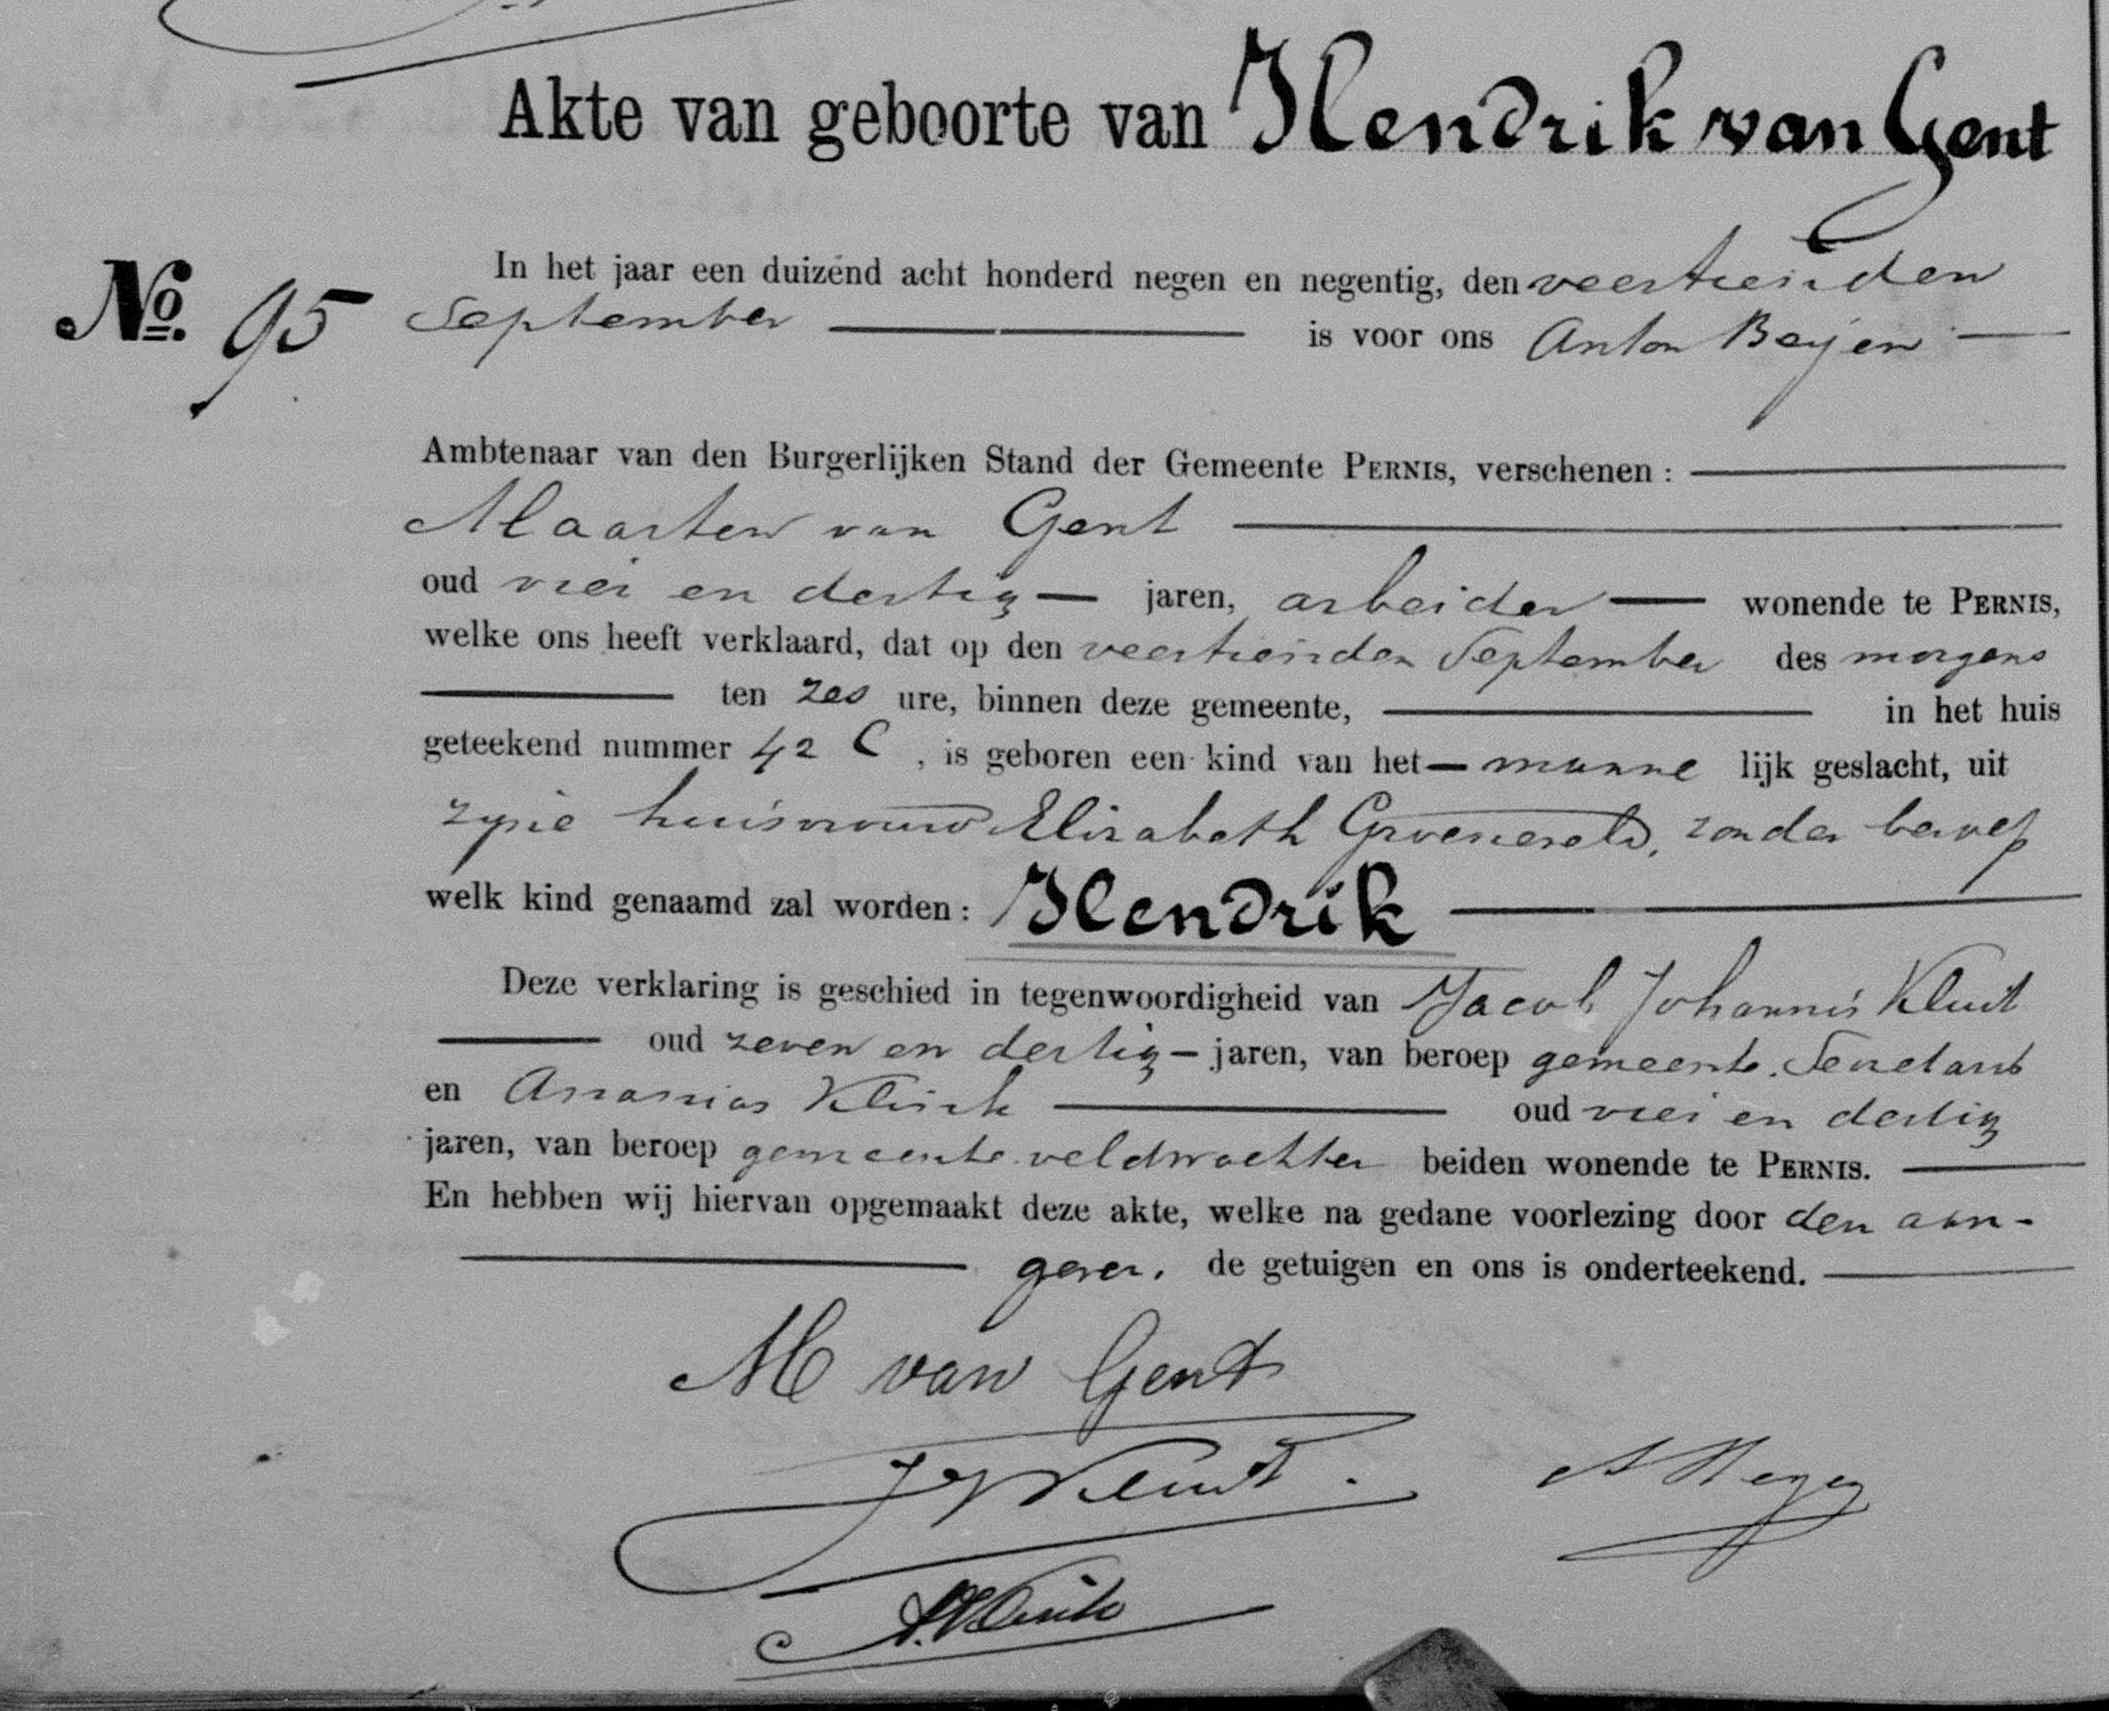 Akte van geboorte van Hendrik van Gent
No. 95
In het jaar een duizend acht honderd negen en negentig, den veertienden
September is voor ons Anton Beyen
Ambtenaar van den Burgerlijken Stand der Gemeente PERNIS, verschenen :
Maarten van Gent
oud vier en dertig jaren, arbeider wonende te PERNIS,
welke ons heeft verklaard, dat op den veertienden September des morgens
ten zes ure, binnen deze gemeente, in het huis
geteekend nummer 42 C, is geboren een kind van het manne lijk geslacht, uit
zijne huisvrouw Elizabeth Groeneveld, zonder beroep
welk kind genaamd zal worden: Hendrik
Deze verklaring is geschied in tegenwoordigheid van Jacob Johannis Kluit
oud zeven en dertig jaren, van beroep gemeente Secretaris
en Ananias Klink oud vier en dertig
jaren, van beroep gemeente veldwachter beiden wonende te PERNIS.
En hebben wij hiervan opgemaakt deze akte, welke na gedane voorlezing door den aan-
gever, de getuigen en ons is onderteekend.
M van Gent
JJ Kluit.
A. Klink